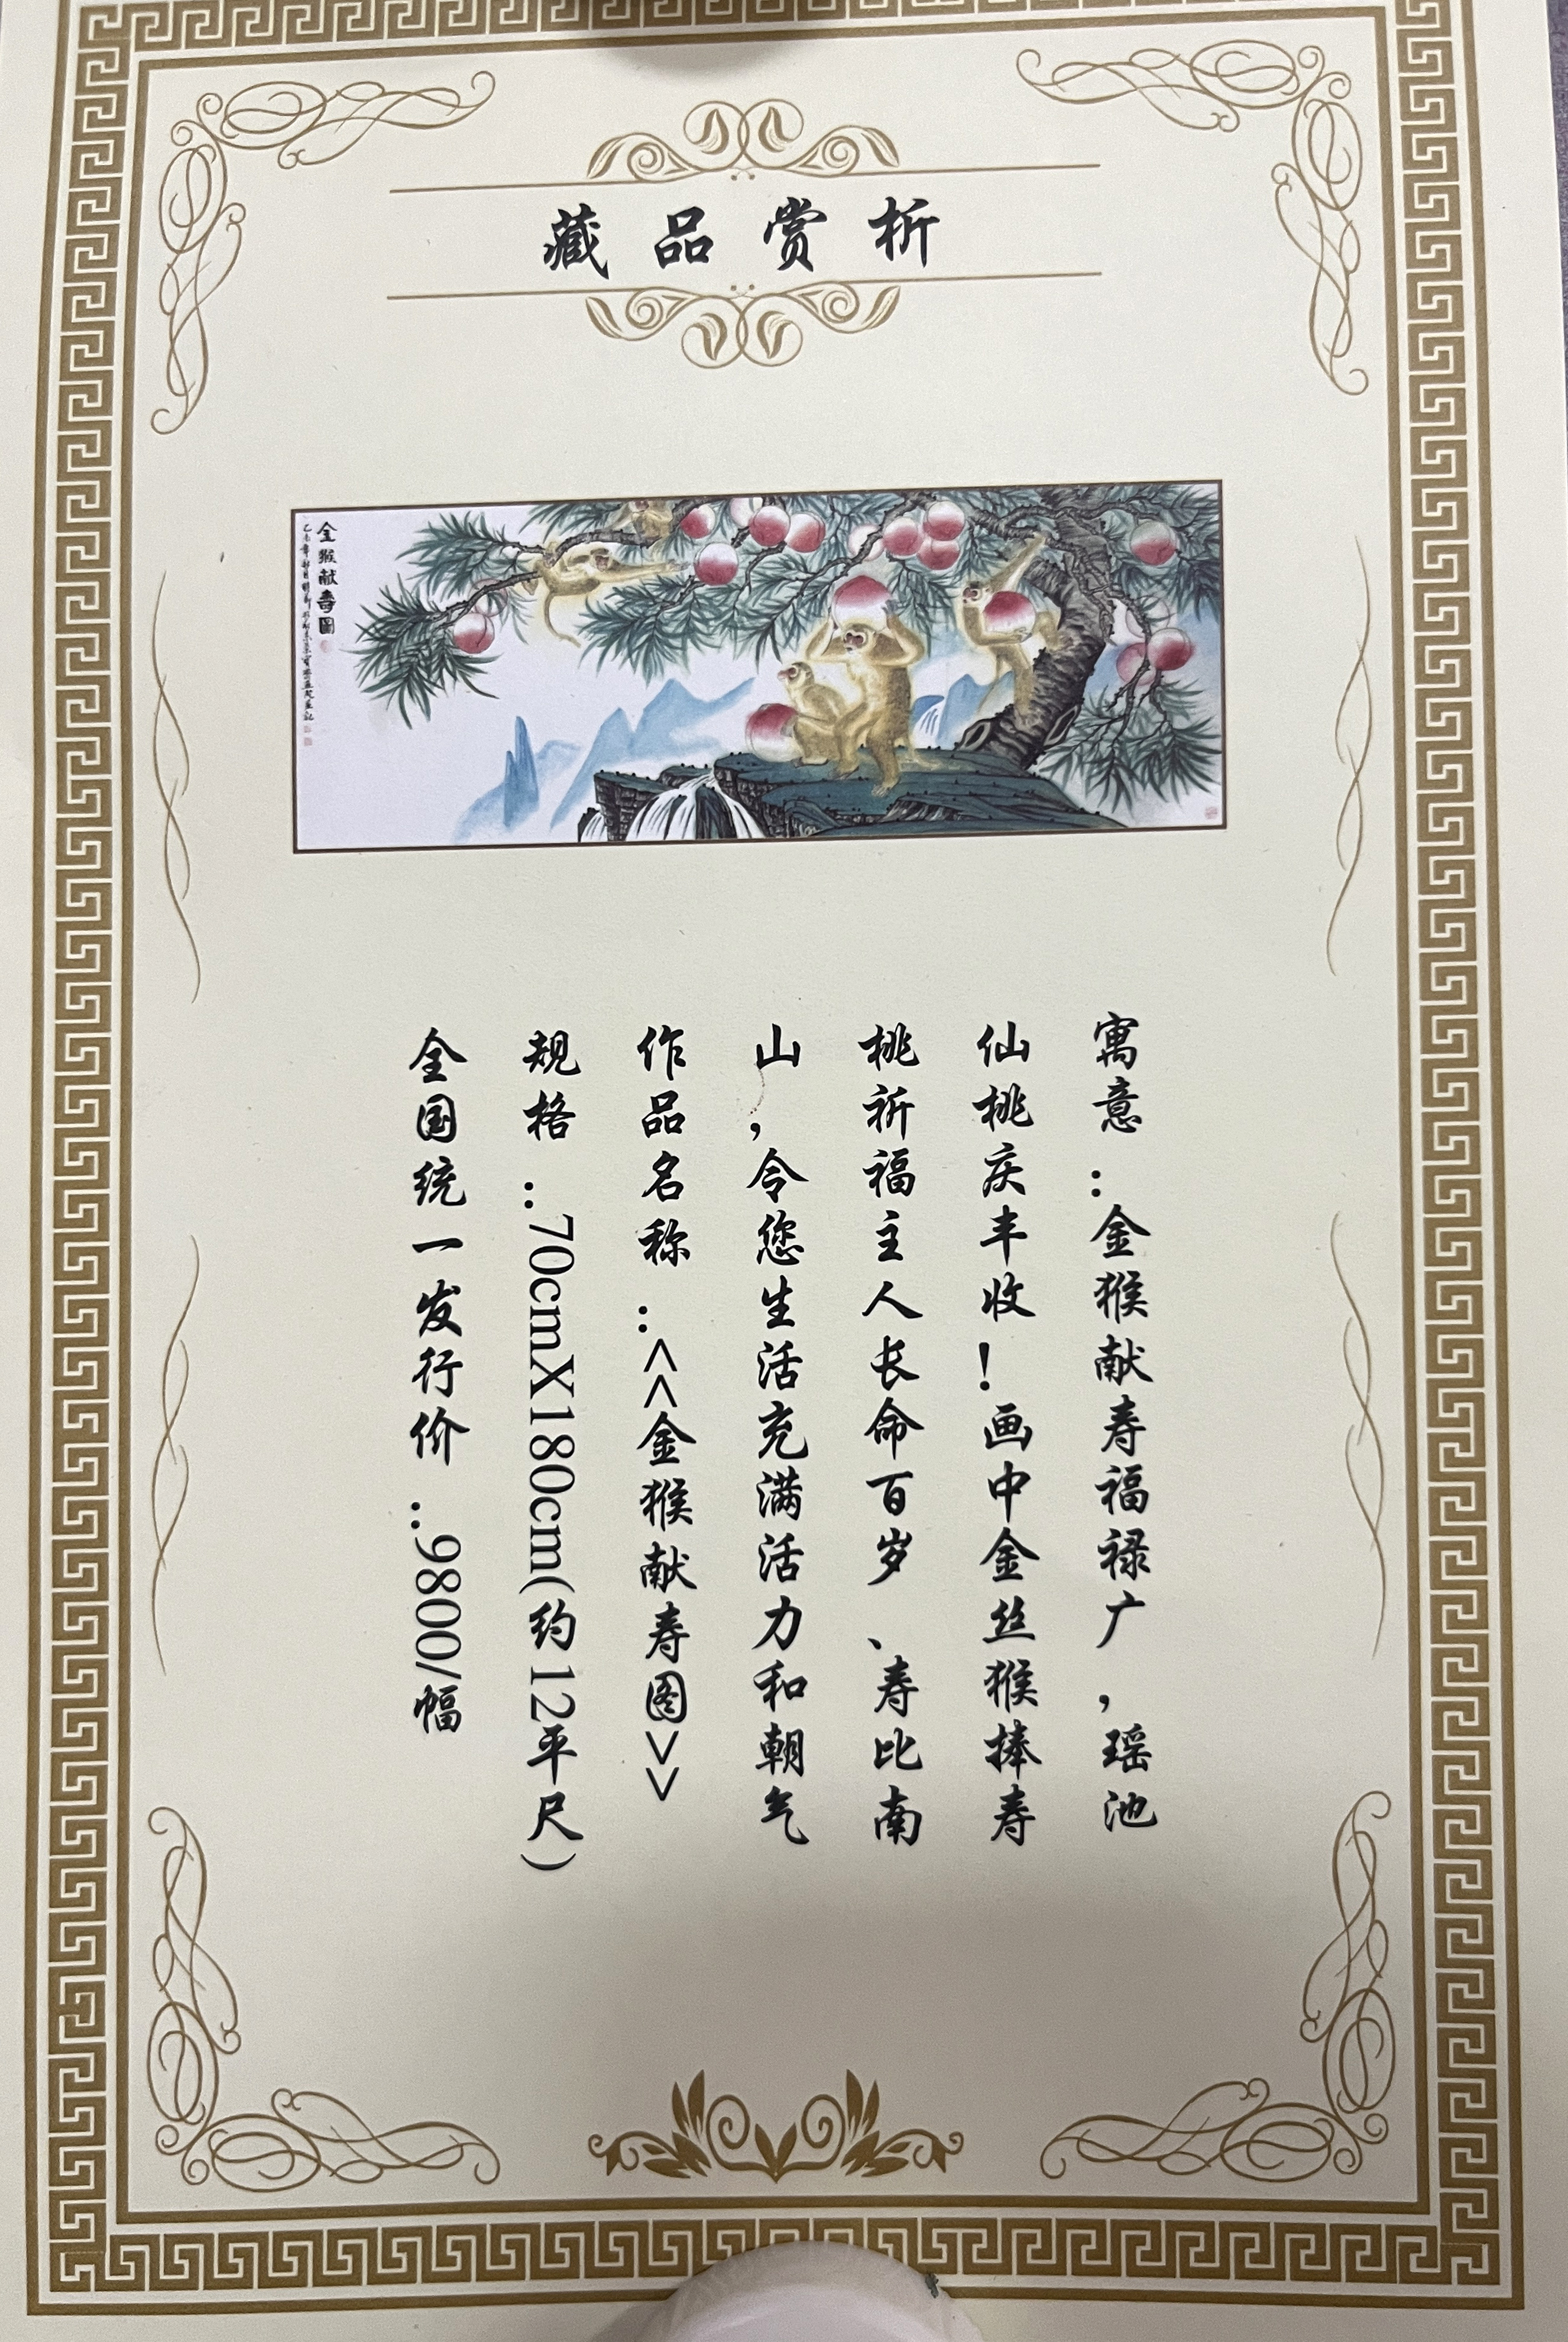 藏品赏析
金猴献寿圖
寓意：金猴献寿福禄广，瑶池
仙桃庆丰收！画中金丝猴捧寿
桃祈福主人长命百岁、寿比南
山，令您生活充满活力和朝气
作品名称：<<金猴献寿图>>
规格：70cmX180cm(约12平尺)
全国统一发行价：9800/幅